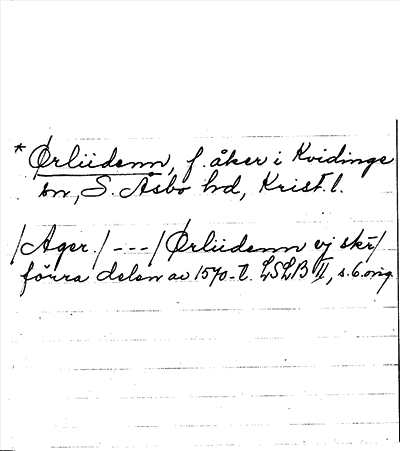 * Ørliidenn, f. åker i Kvidinge
sn, S. Åsbo hd, Krist. l.
/Ager./ --- / Ørliidenn ej skr/
förra delen av 1570-t. LSLB II, s. 6. orig.